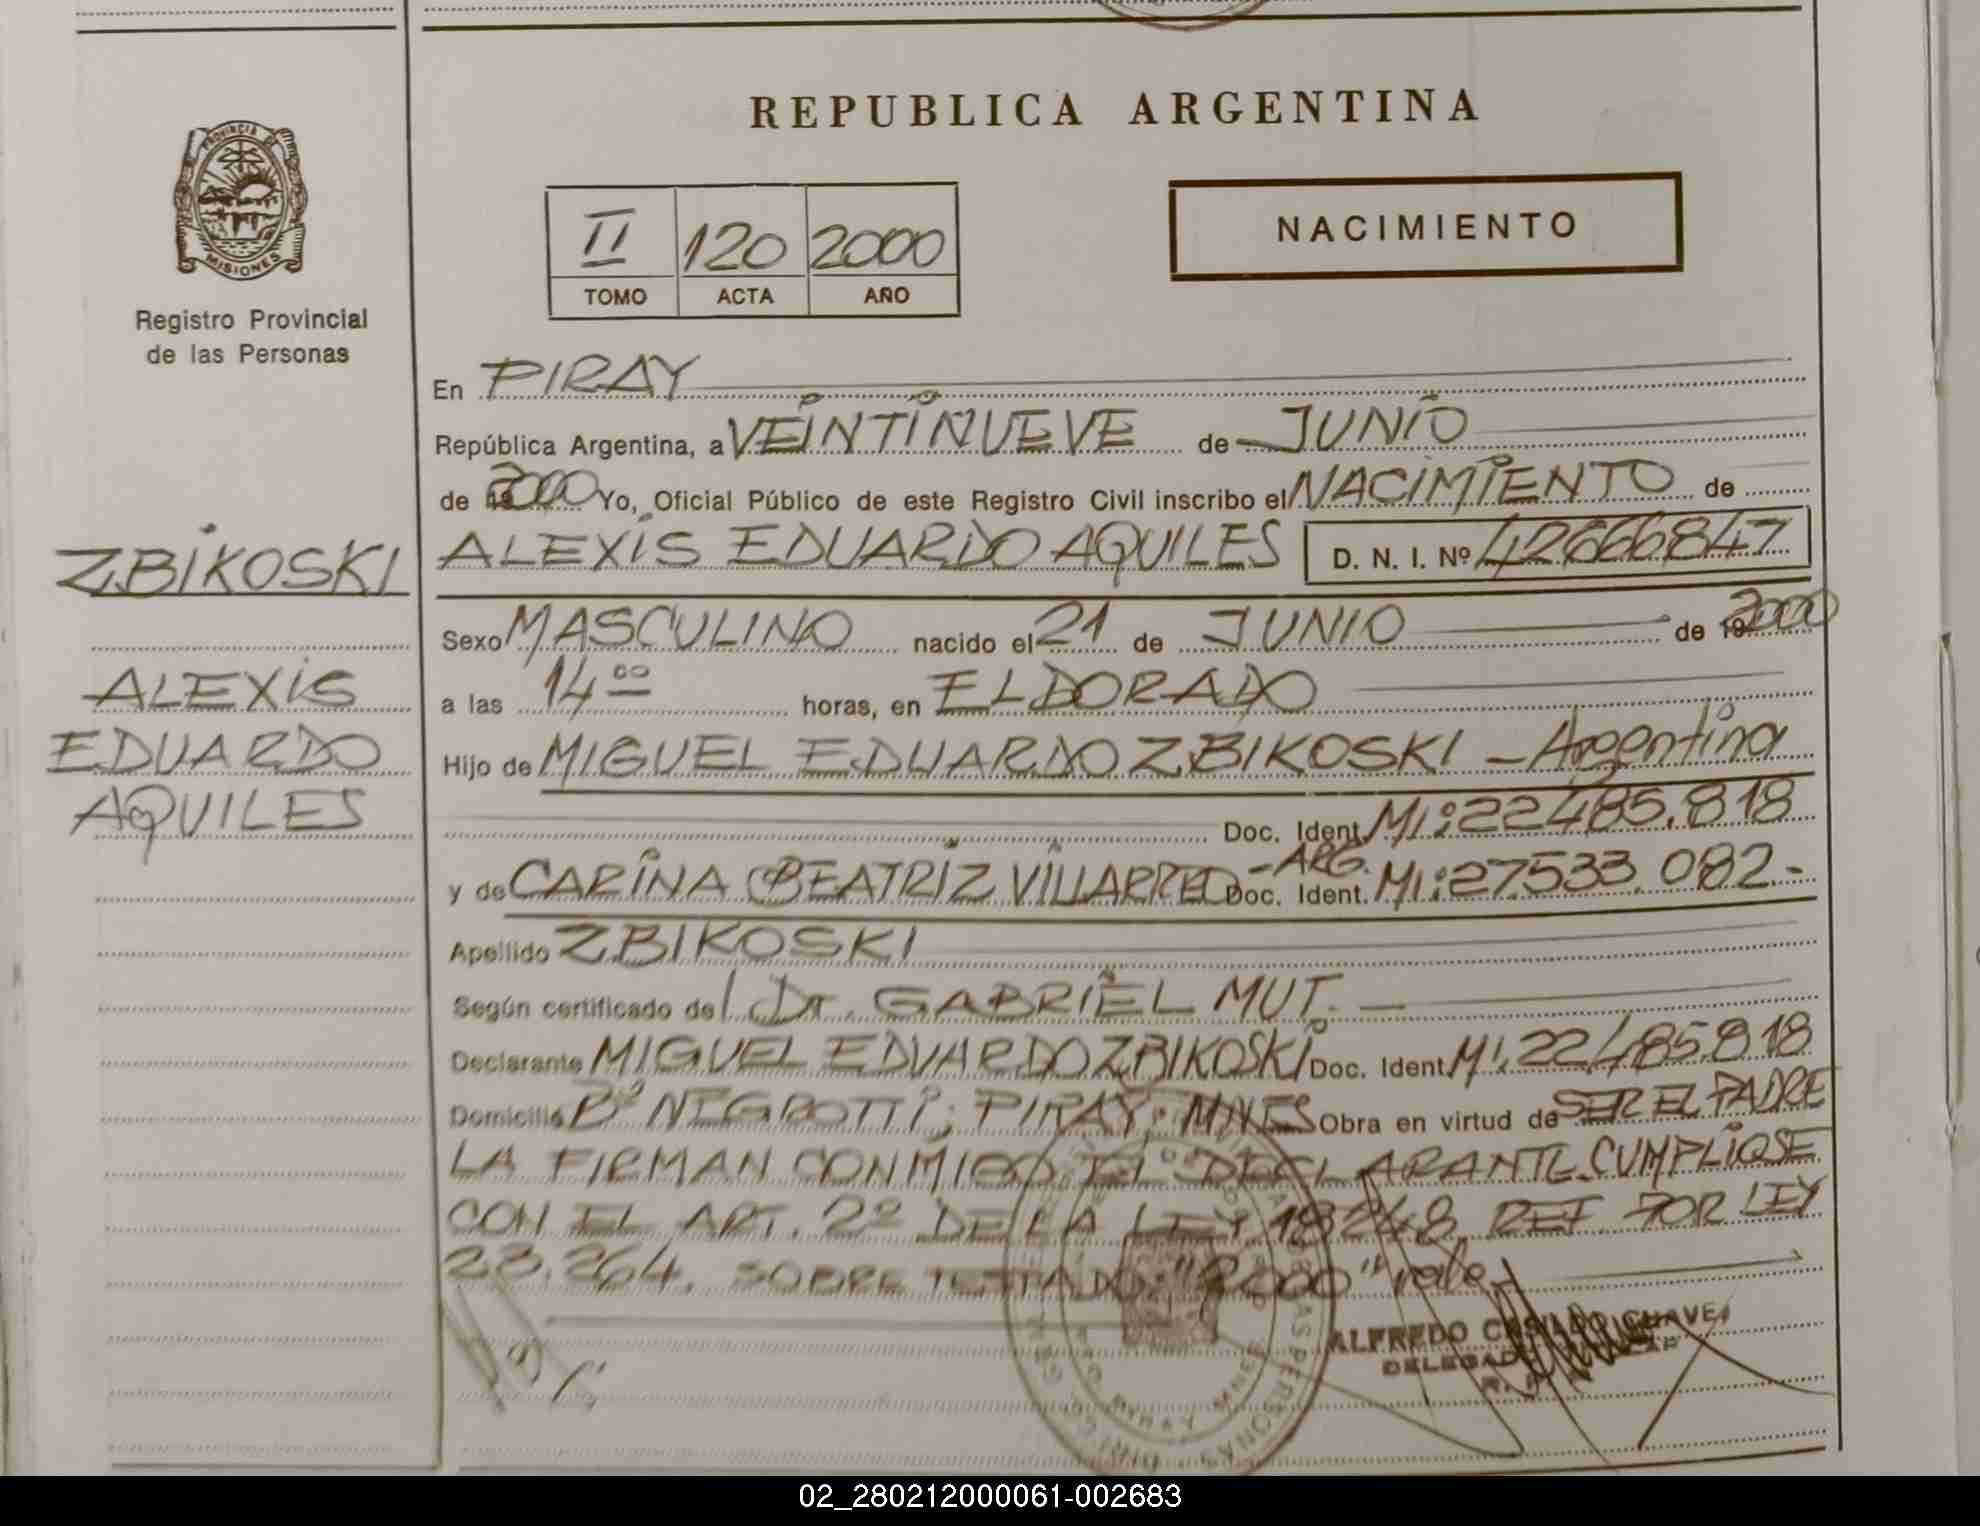 REPUBLICA ARGENTINA
PROVINCIA DE MISIONES
Registro Provincial
de las Personas
II 120 2000
TOMO ACTA AÑO
NACIMIENTO
ZBIKOSKI
ALEXIS
EDUARDO
AQUILES
En PIRAY
República Argentina, a VEINTINUEVE de JUNIO
de 2000 Yo, Oficial Público de este Registro Civil inscribo el NACIMIENTO de
ALEXIS EDUARDO AQUILES D. N. I. Nº 42666847
Sexo MASCULINO nacido el 21 de JUNIO de 2000
a las 14 00 horas, en ELDORADO
Hijo de MIGUEL EDUARDO ZBIKOSKI - Argentina
Doc. Ident. MI: 22485.818
y de CARINA BEATRIZ VILLARREO - ARG. Doc. Ident. MI: 27533.082.-
Apellido ZBIKOSKI
Según certificado del Dr. GABRIEL MUT. —
Declarante MIGUEL EDUARDO ZBIKOSKI Doc. Ident. MI. 22.485.818
Domicilio Bº NEGROTTI; PIRAY; MNES Obra en virtud de SER EL PADRE
LA FIRMAN CONMIGO EL DECLARANTE. CUMPLIOSE
CON EL ART. 2º DE LA LEY 18248 REF POR LEY
23.264. SOBRE TESTADO: "2000" vale.
ALFREDO CASILDO CHAVEZ
DELEGADO
02_280212000061-002683